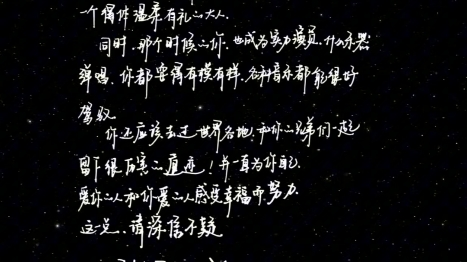 一个得体温柔有礼的大人.
同时,那个时候的你.也成为实力演员.什么乐器
弹唱.你都耍得有模有样.各种音乐都能很好
驾驭
你还应该去过世界各地,和你的兄弟们一起
留下很厉害的道迹!并一直为你自己.
爱你的人和你爱的人感受幸福而努力.
这一点.请深信不疑